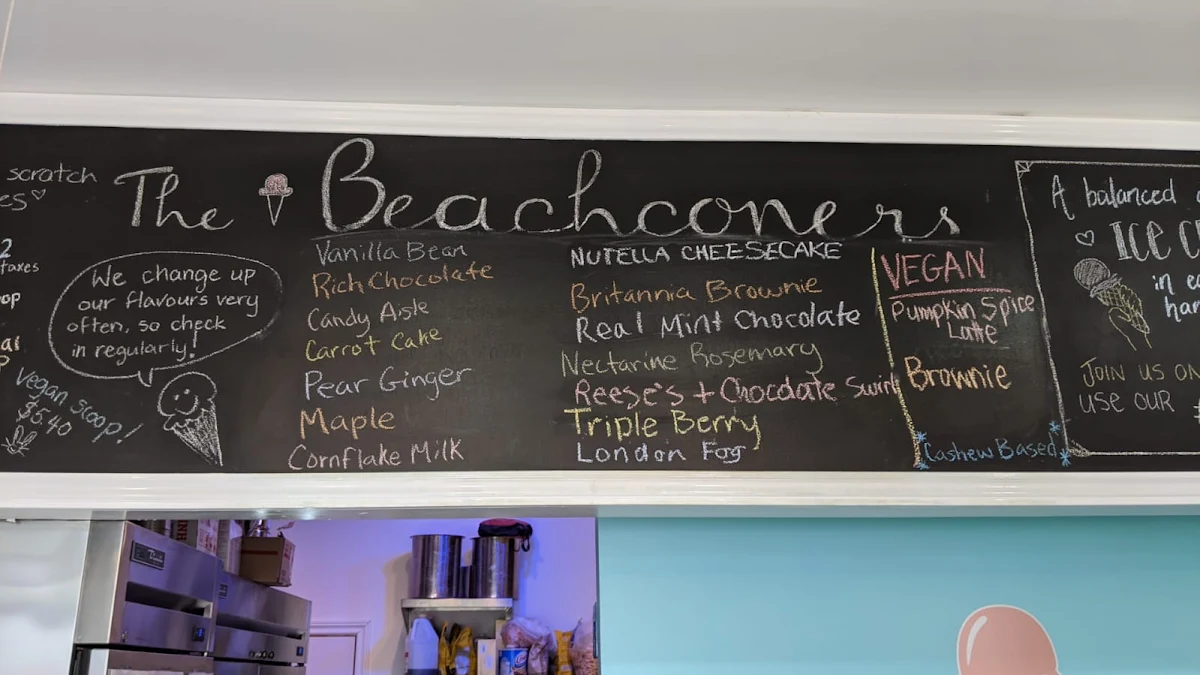 scratch
es
2
taxes
op
al
We change up
our flavours very
often, so check
in regularly!
Vegan Scoop!
$5.40
The Beachconers
Vanilla Bean
Rich Chocolate
Candy Aisle
Carrot Cake
Pear Ginger
Maple
Cornflake Milk
NUTELLA CHEESECAKE
Britannia Brownie
Real Mint Chocolate
Nectarine Rosemary
Reese's + Chocolate Swirl
Triple Berry
London Fog
VEGAN
Pumpkin Spice
Latte
Brownie
Cashew Based
A balanced
ICE C
in e
ha
JOIN US ON
USE OUR